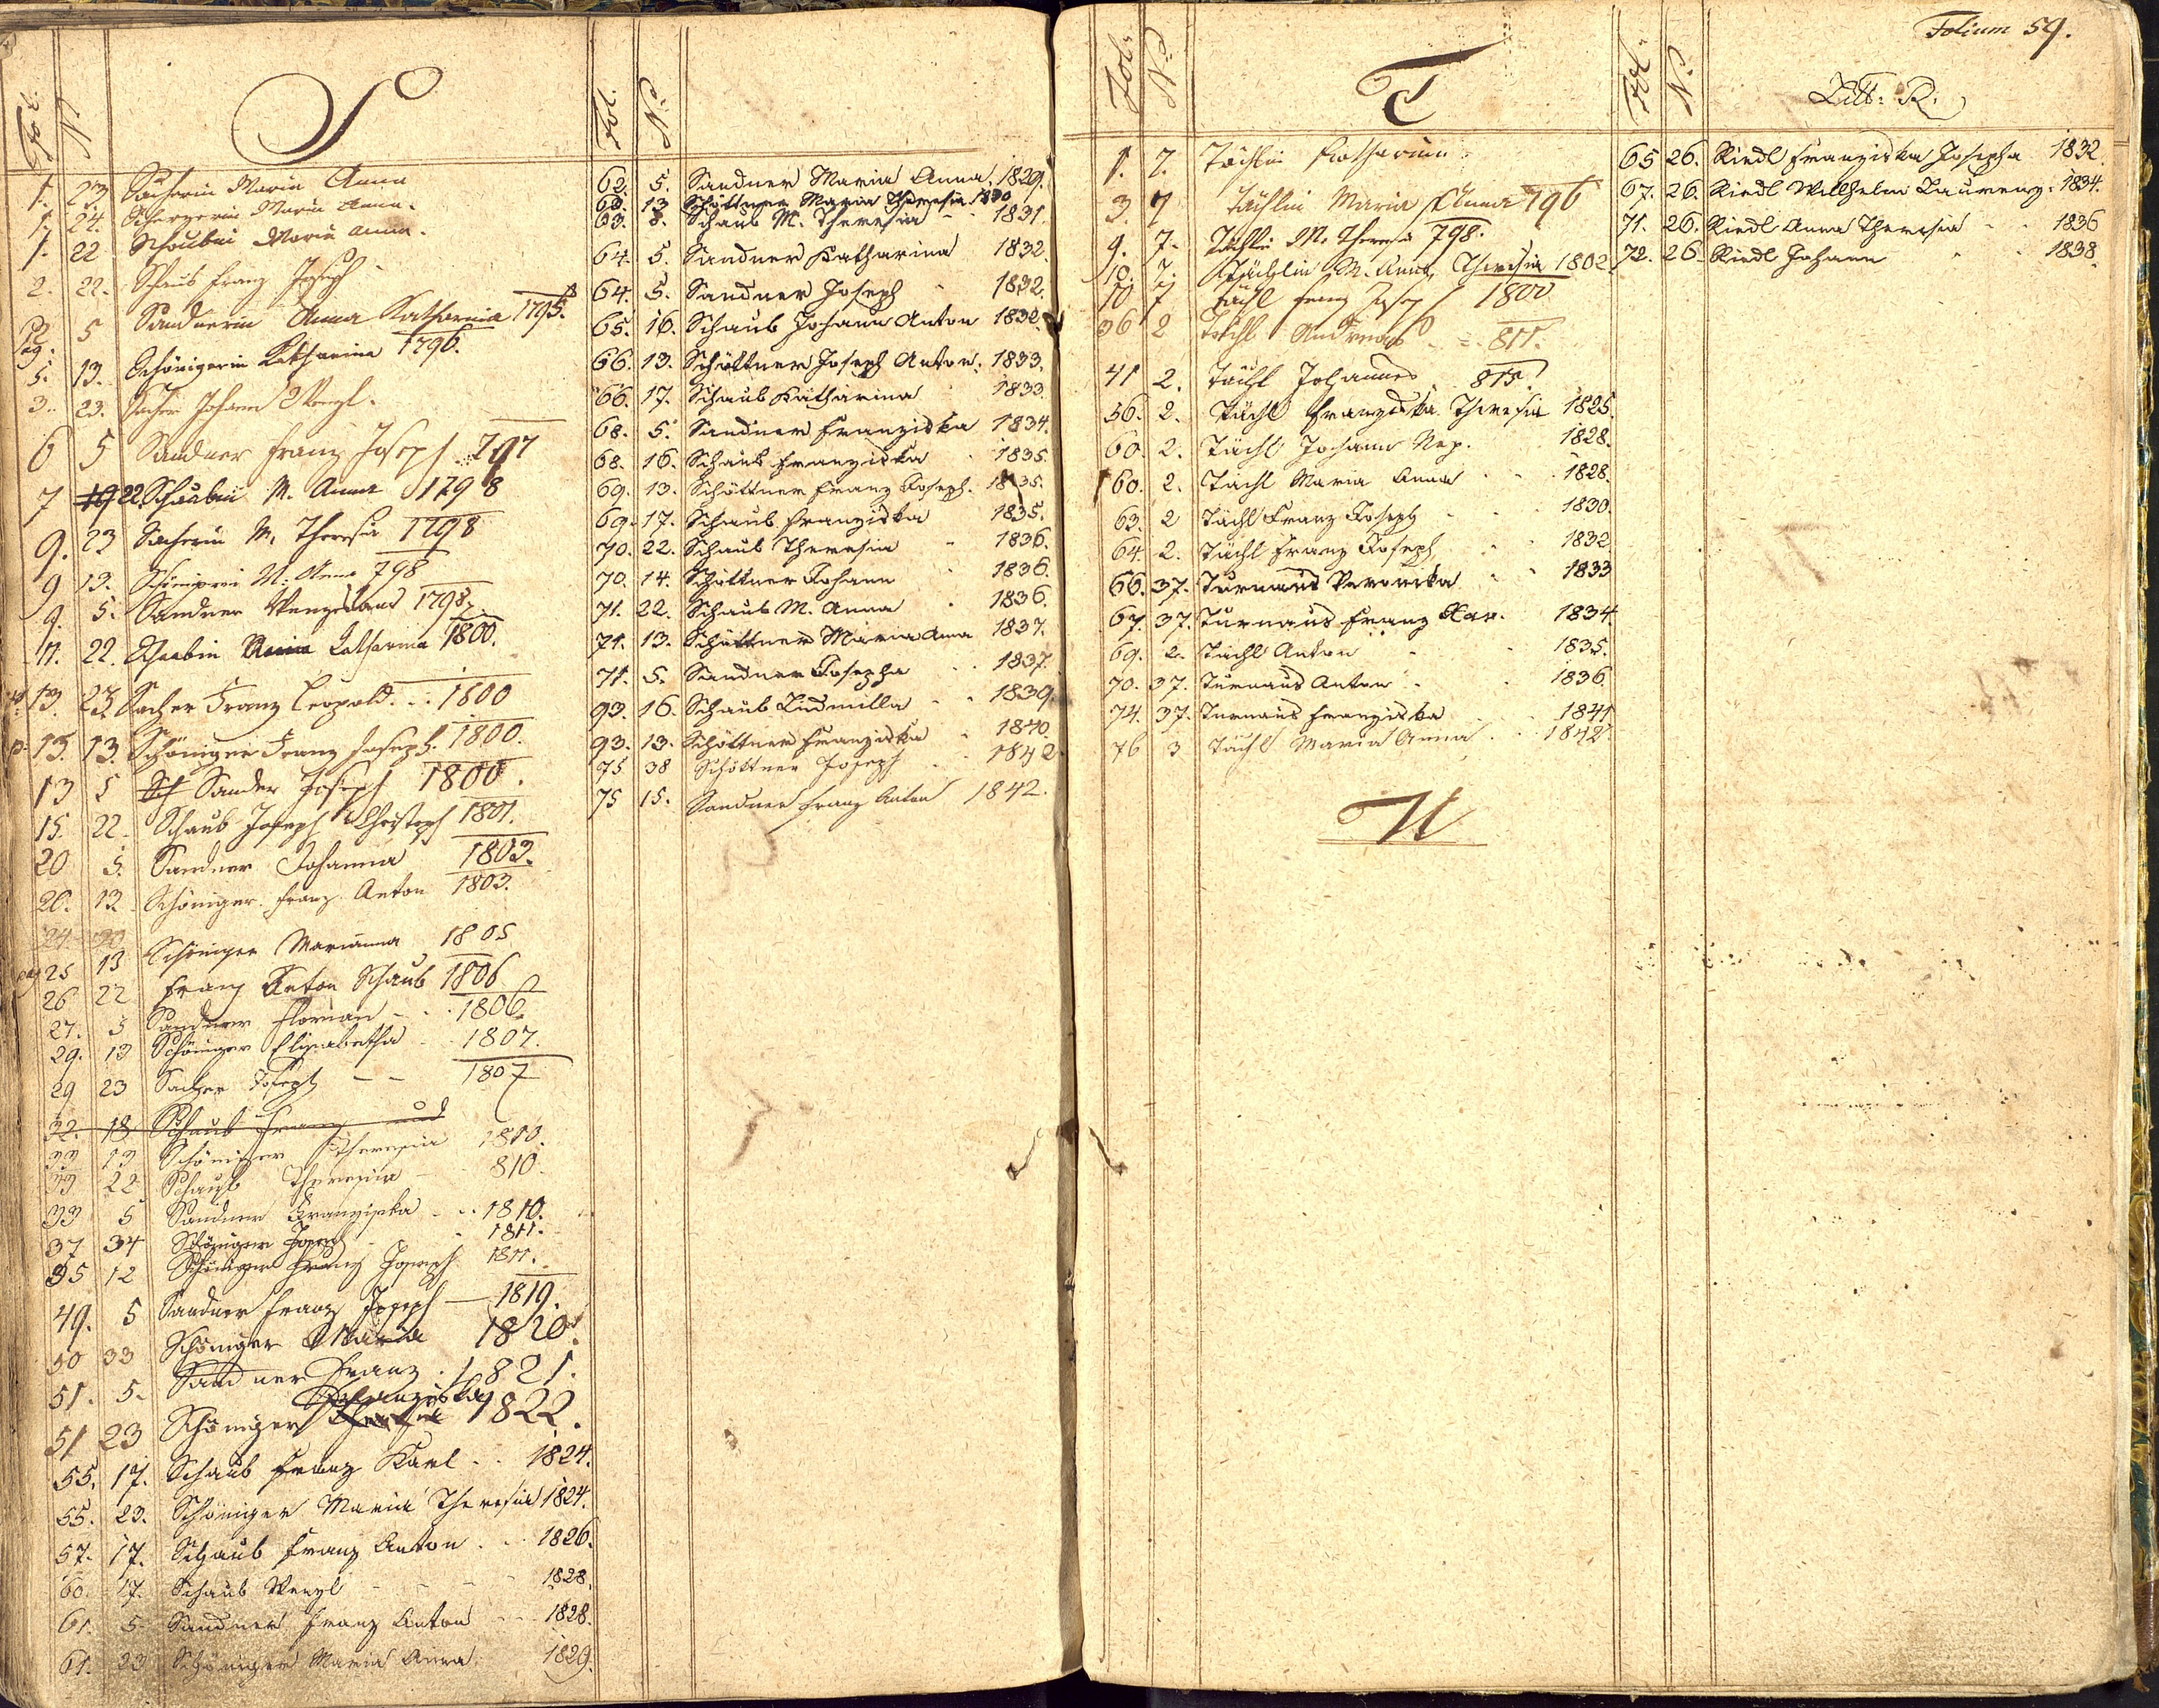 Fol. N. S
1. 23. Sacherin Maria Anna
1. 24. Maria Anna.
1. 22 Schaubin Maria Anna.
2. 22. Schaub Franz Joseph
pag. 5 Sandnerin Anna Katharina 1795.
5. 13. Schönigerin Katharina 1796.
3. 23. Sacher Johann Wenzl.
6 5 Sandner Franz Joseph 797
7 19 22 Schaubin M. Anna 1798
9. 23 Sacherin M. Theresia 1798
9 13. Schönigerin M. Anna 798
9. 5. Sandner Wenzeslaus 1798
11. 22. Schaabin Katharina 1800.
13. 23. Sacher Franz Leopold. 1800
p. 13. 13. Schöniger Franz Joseph. 1800.
13 5 Sch Sander Joseph 1800.
15 22. Schaub Joseph Christoph 1801.
20 5. Sandner Johanna 1803.
20. 13. Schöniger Franz Anton 1803.
24 20
pag 25 13 Schöniger Marianna 1805
26 22 Franz Anton Schaub 1806
27. 5 Sandner Florian 1806.
29. 13 Schöniger Elisabetha 1807.
29 23 Sacher Joseph 1807
32. 18 Schaub Franz und
33 13 Schöniger Theresia 1810.
33 22 Schaub Theresia 810.
33 5 Sandner Franziska 1810.
37 34 Schöniger Josep 1811.
35 12 Schöniger Franz Joseph 1811.
49. 5 Sandner Franz Joseph 1819.
50 33 Schöniger Maria 1820.
51. 5. Sandner Franz. 1821.
Franziska
51 23 Schöniger Theresia 1822.
55. 17. Schaub Franz Karl 1824.
55. 23. Schöniger Maria Theresia 1824.
57. 17. Schaub Franz Anton 1826.
60. 17. Schaub Wenzl 1828.
61. 5. Sandner Franz Anton 1828.
61. 23 Schöniger Maria Anna. 1829.
Fol. N.
62. 5. Sandner Maria Anna. 1829.
62. 13 Schöttner Maria Theresia 1830
63. 8. Schaub M. Theresia 1831.
64. 5. Sandner Katharina 1832.
64. 5. Sandner Joseph 1832.
65. 16. Schaub Johann Anton 1832.
66. 13. Schöttner Joseph Anton. 1833.
66. 17. Schaub Katharina 1833.
68. 5. Sandner Franziska 1834.
68. 16. Schaub Franziska 1835.
69. 13. Schöttner Franz Joseph. 1835.
69. 17. Schaub Franziska 1835.
70. 22. Schaub Theresia 1836.
70. 14. Schöttner Johann 1836.
71. 22. Schaub M. Anna 1836.
71. 13. Schöttner Maria Anna 1837.
71. 5. Sandner Josepha 1837.
93. 16. Schaub Ludmilla 1839.
93. 13. Schöttner Franziska 1840.
75 38 Schöttner Joseph 1842
75 15. Sandner Franz Anton 1842.
Folium 59.
Fol. N. T
1. 7. Tächlin Katharina.
3. 7 Tächlin Maria Anna 796
9. 7. Tächlin M. Theresia 798.
10. 7. Tächlin M. Anna Theresia 1802.
10 7 Tächl Franz Joseph 1800
36 2 Tächl Andreas 811.
41 2. Tächl Johannes 815.
56. 2. Tächl Franziska Theresia 1825.
60. 2. Tächl Johann Nep. 1828.
60. 2. Tächl Maria Anna 1828.
63. 2 Tächl Franz Joseph 1830.
64. 2. Tächl Franz Joseph 1832.
66. 37. Turnaus Veronika 1833
67. 37. Turnaus Franz Xav. 1834.
69. 2. Tächl Anton 1835.
70. 37. Turnaus Anton 1836.
74. 37. Turnaus Franziska 1841
76 3 Tächl Maria Anna 1842
U
Fol. N. Litt: R.
65 26. Riedl Franziska Josepha 1832.
67. 26. Riedl Willhelm Laurenz. 1834.
71. 26. Riedl Anna Theresia 1836
72. 26. Riedl Johann 1838.